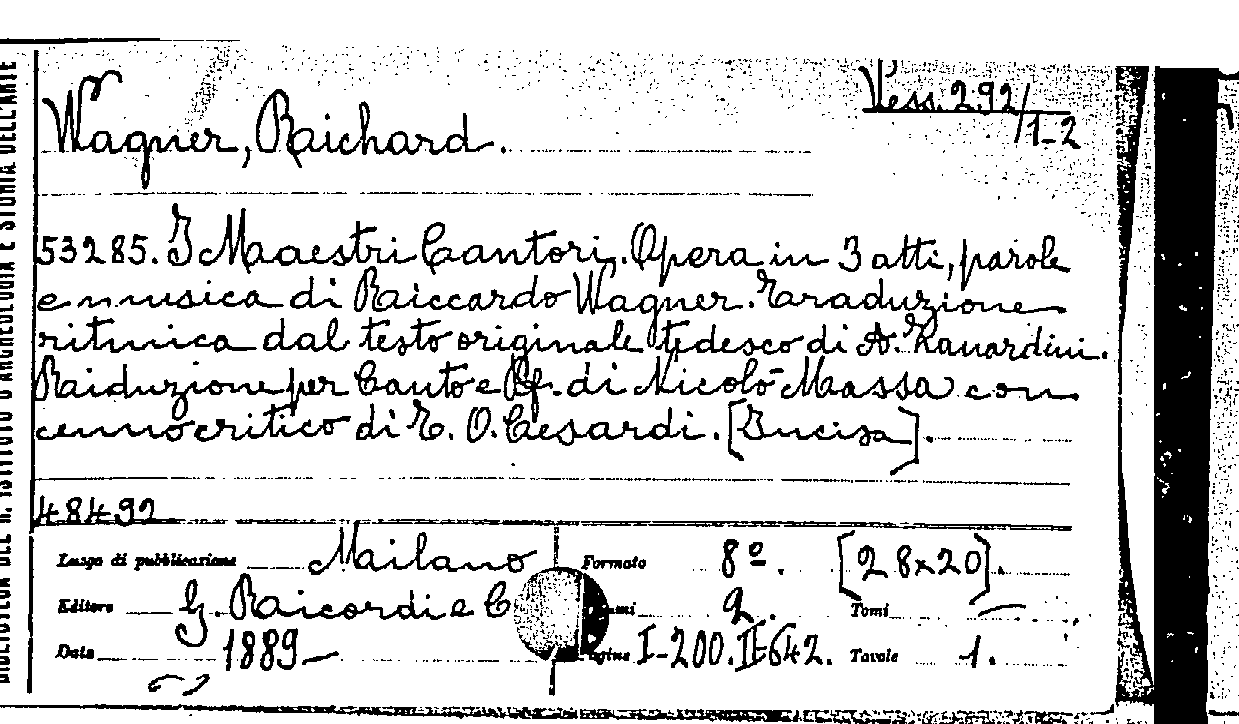 BIBLIOTECA DEL R. ISTITUTO D'ARCHEOLOGIA E STORIA DELL'ARTE
Vess. 292/1-2
Wagner, Richard.
53285. I Maestri Cantori. Opera in 3 atti, parole
e musica di Riccardo Wagner. Traduzione
ritmica dal testo originale tedesco di A. Zanardini.
Riduzione per Canto e Pf. di Nicolò Massa con
cenno critico di E. O. Cesardi. [Incisa].
48492
Luogo di pubblicazione Milano Formato 8º. [28x20].
Editore G. Ricordi e C 2. Tomi
Data 1889 I-200. II-642. Tavole 1.